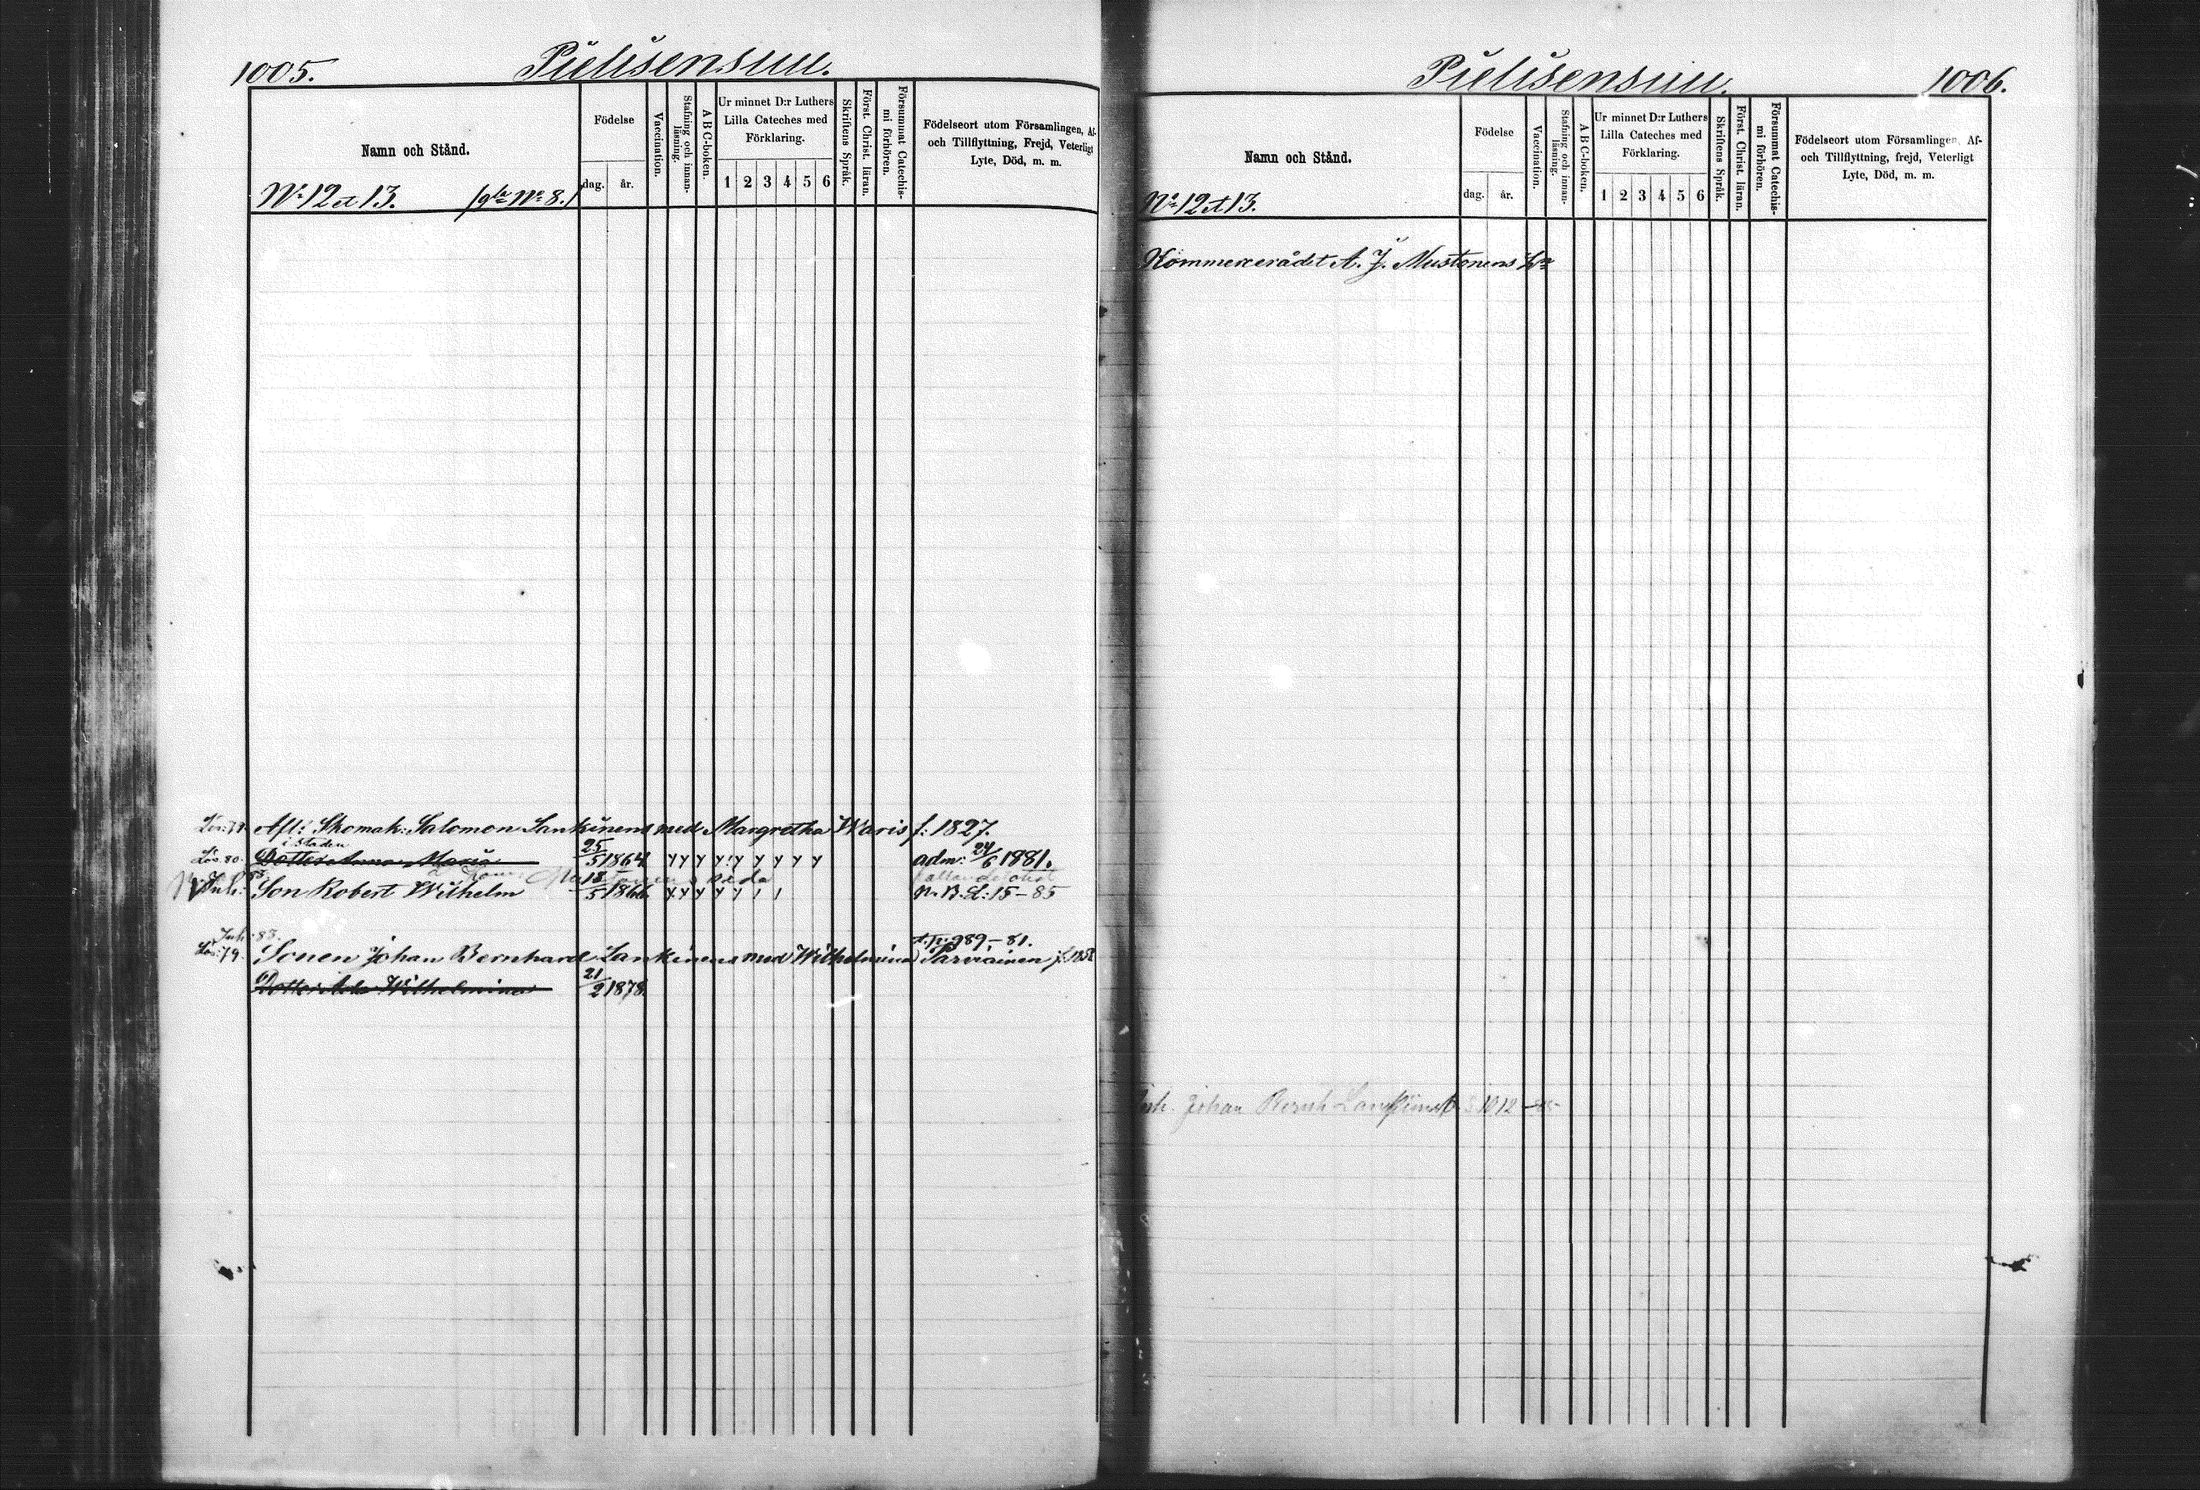 1005.
Pielisensuu.
Namn och Stånd.
Födelse
dag.
år.
Vaccination.
Stafning och innan-
läsning.
A B C-boken.
Ur minnet D:r Luthers
Lilla Cateches med
Förklaring.
1 2 3 4 5 6
Skriftens Språk.
Först. Christ. läran.
Försummat Catechis-
mi förhören.
Födelseort utom Församlingen, Af-
och Tillflyttning, Frejd, Veterligt
Lyte, Död, m. m.
No 12 et 13. (gla No 8.)
Lös: 79. Afl: Skomak: Salomon Lankinens med Margretha Waris f: 1827.
i staden
Lös: 80. Dotter Anna Maria 25/5 1864 adm: 24/6 1881.
Inh: Son Robert Wilhelm 18/5 1866 N. B. L: 15-85
Inh: 83.
989,-81.
Lös: 79. Sonen Johan Bernhard Lankinens med Wilhelmina Parviainen
Dotter Ada Wilhelmina 21/2 1878.
Pielisensuu.
1006.
Namn och Stånd.
Födelse
dag.
år.
Vaccination.
Stafning och innan-
läsning.
A B C-boken.
Ur minnet D:r Luthers
Lilla Cateches med
Förklaring.
1 2 3 4 5 6
Skriftens Språk.
Först. Christ. läran.
Försummat Catechis-
mi förhören.
Födelseort utom Församlingen, Af-
och Tillflyttning, frejd, Veterligt
Lyte, Död, m. m.
No 12 et 13.
Kommerserådet A. J. Mustonens
Inh. Johan Bernh Lankinen 1012